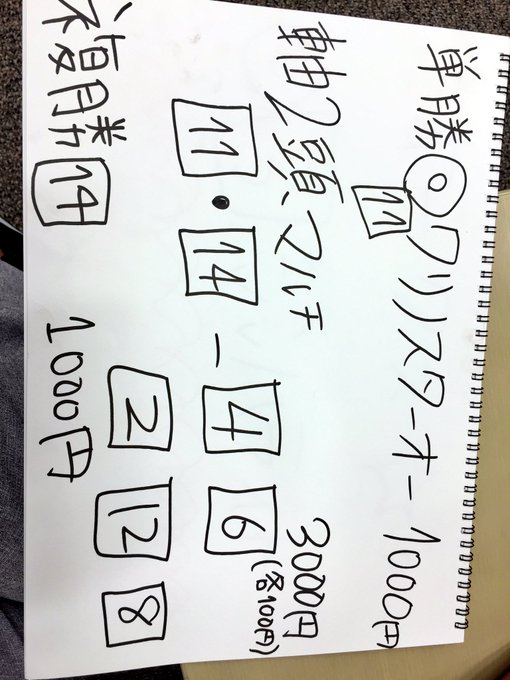 単勝◎クリノスターオー 1000円
11
軸2頭マルチ 3000円
(各100円)
11・14－4 6
2 12 8
複勝14 1000円